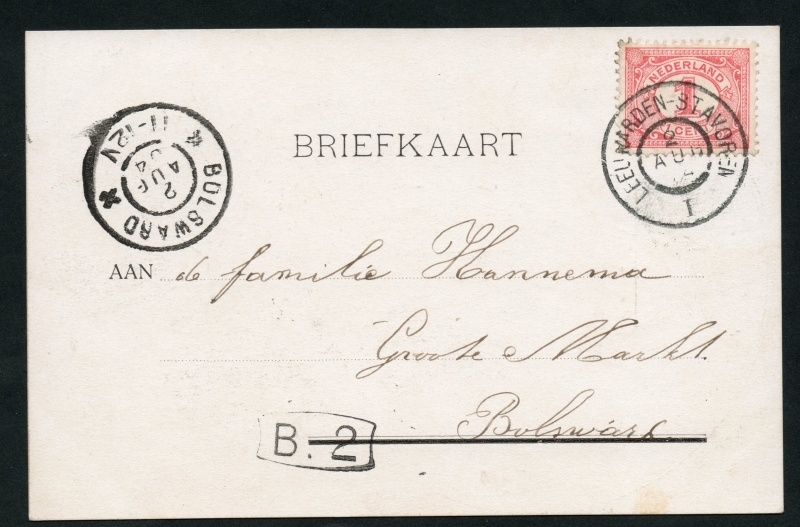 NEDERLAND
1
CENT
LEEUWARDEN-STAVOREN
AUG
I
11-12V
2
AUG
04
BOLSWARD
BRIEFKAART
AAN de familie Hannema
Groote Markt.
Bolsward
B. 2